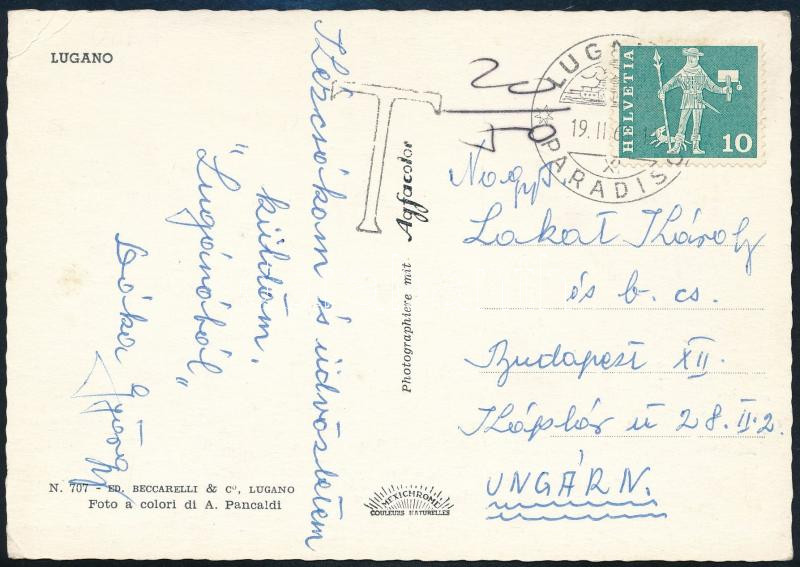 LUGANO
Kézcsókom és üdvözletem
küldöm.
"Lugánóból"
Sóker
György
T
20
50
LUGANO
PARADISO
19. II. 6
XI
HELVETIA
10
Nagys.
Lakat Károly
és b. cs.
Budapest XII.
Káplár u 28. II. 2.
UNGÁRN.
Photographiere mit Agfacolor
N. 707 - ED. BECCARELLI & Cº, LUGANO
Foto a colori di A. Pancaldi
MEXICHROME
COULEURS NATURELLES